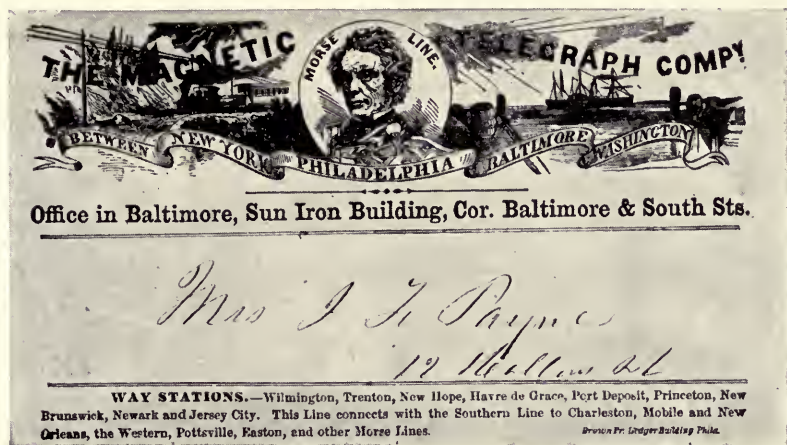 THE MAGNETIC TELEGRAPH COMPY.
MORSE LINE.
BETWEEN NEW YORK PHILADELPHIA BALTIMORE WASHINGTON
Office in Baltimore, Sun Iron Building, Cor. Baltimore & South Sts.
Mrs J Payne
12
WAY STATIONS.—Wilmington, Trenton, New Hope, Havre de Grace, Port Deposit, Princeton, New
Brunswick, Newark and Jersey City. This Line connects with the Southern Line to Charleston, Mobile and New
Orleans, the Western, Pottsville, Easton, and other Morse Lines.
Brown Pr. Ledger Building Phila.